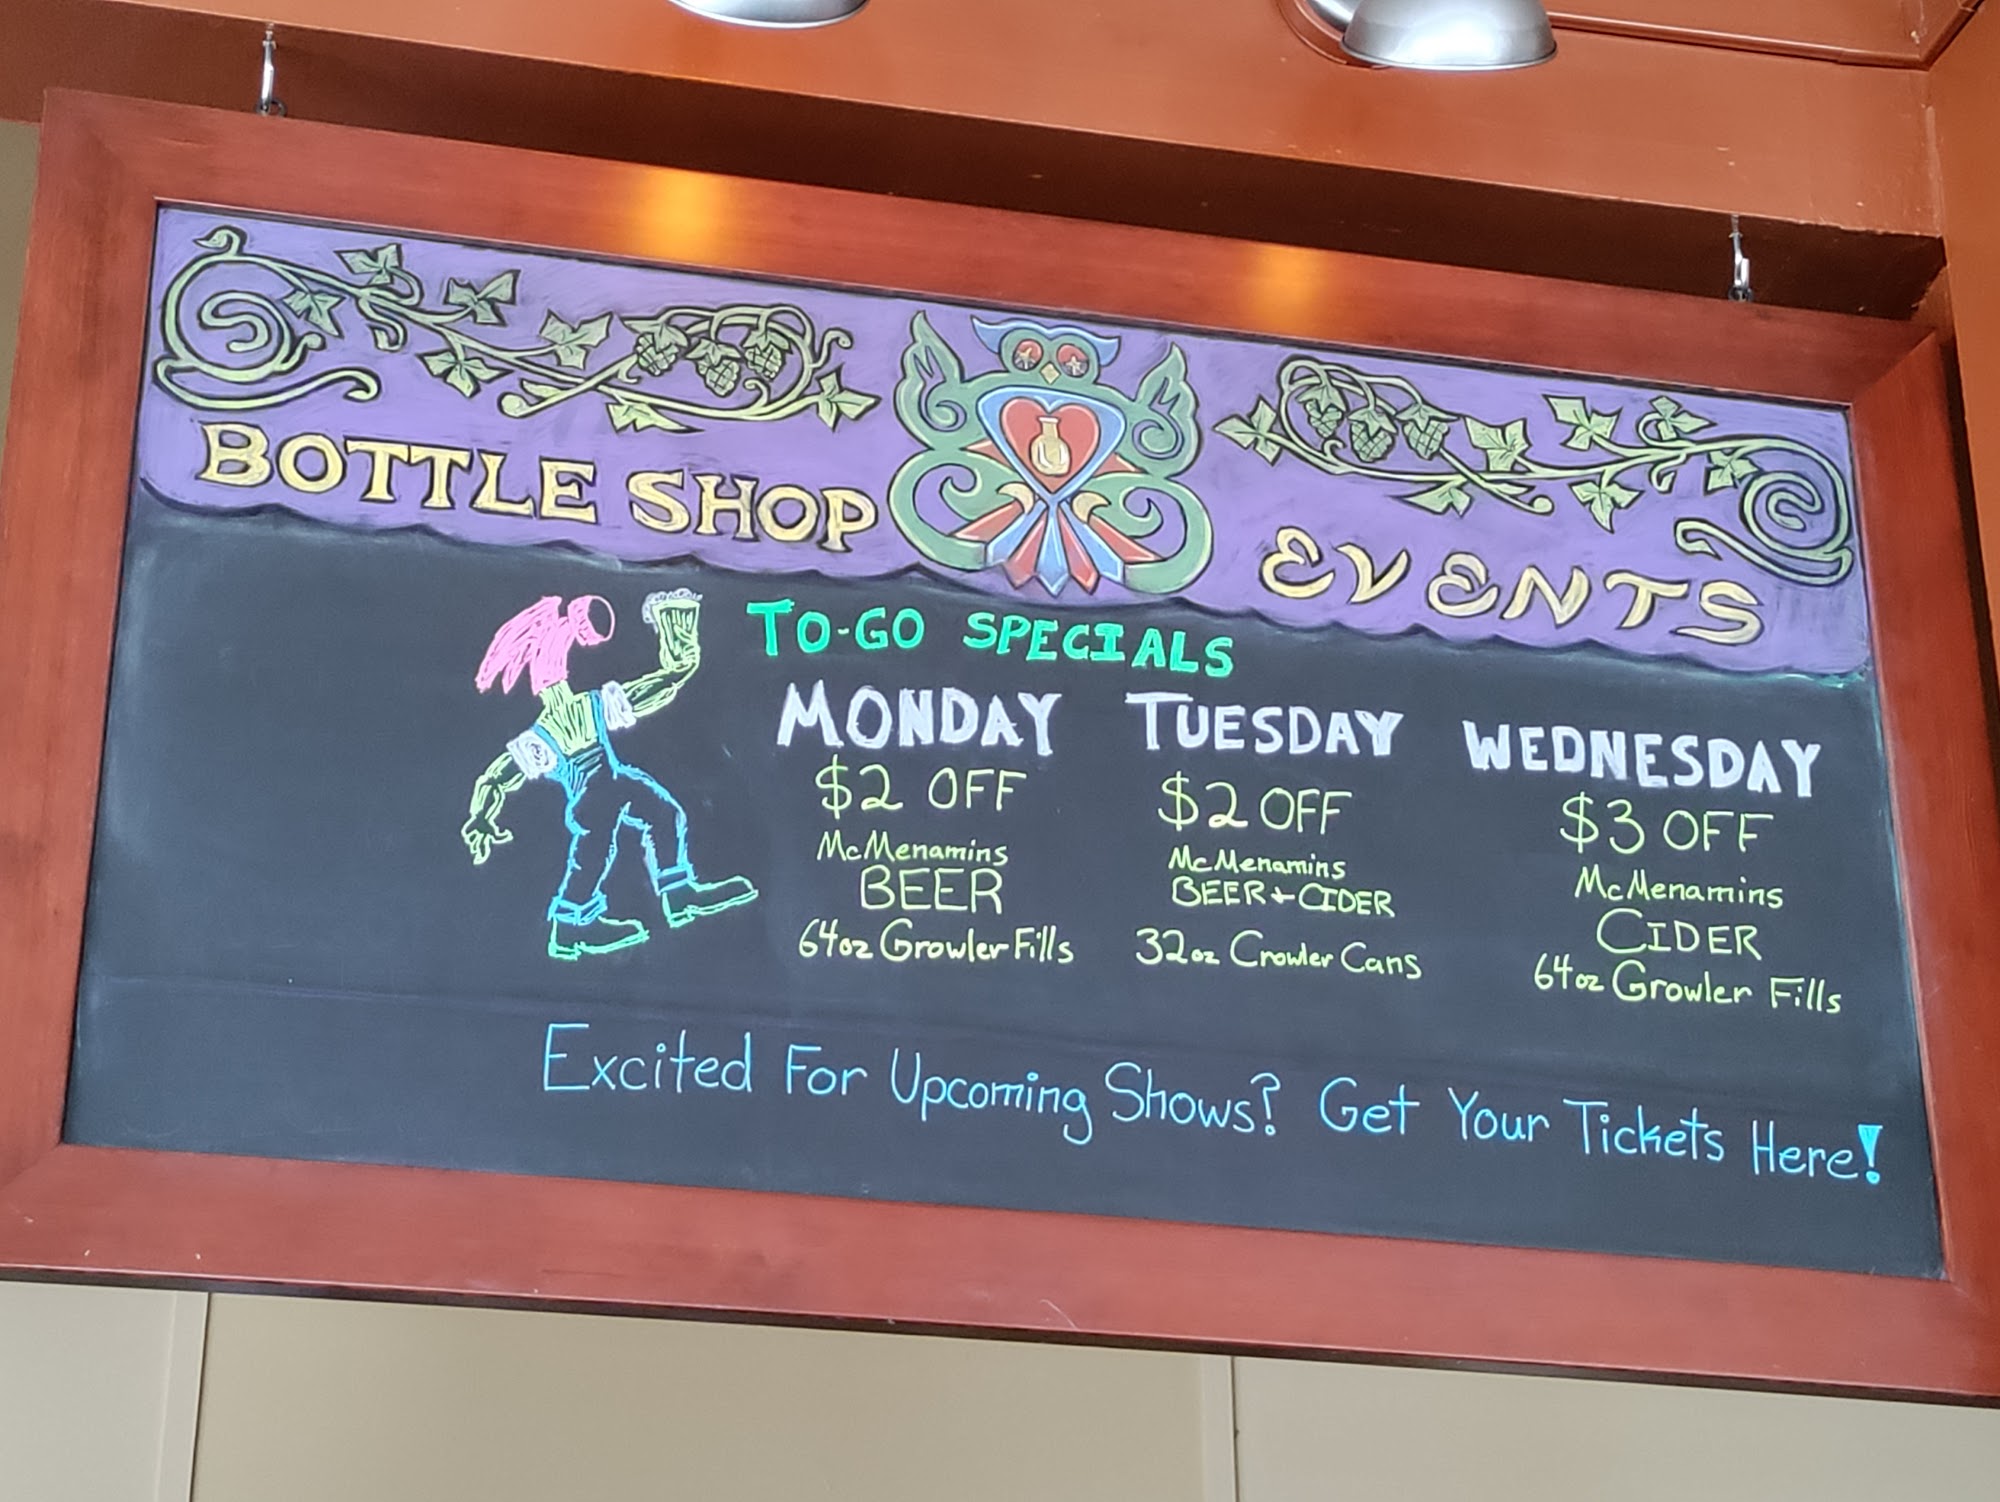 BOTTLE SHOP EVENTS
TO-GO SPECIALS
MONDAY
$2 OFF
McMenamins
BEER
64oz Growler Fills
TUESDAY
$2 OFF
McMenamins
BEER + CIDER
32oz Crowler Cans
WEDNESDAY
$3 OFF
McMenamins
CIDER
64oz Growler Fills
Excited For Upcoming Shows? Get Your Tickets Here!